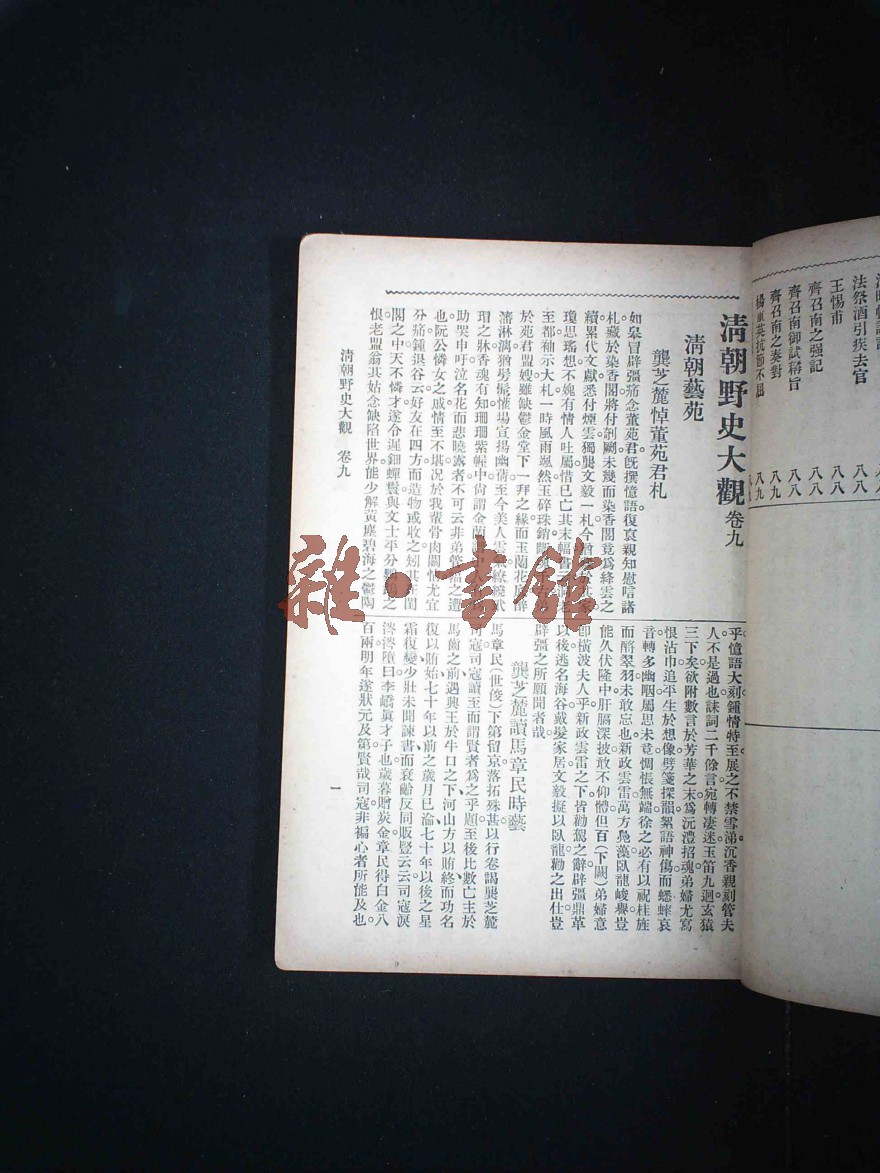 法祭酒引疾去官 八八
王惕甫 八八
齊召南之强記 八八
齊召南御試稱旨 八八
齊召南之奏對 八九
楊重英抗節不屈 八九
清朝野史大觀 卷九
清朝藝苑
龔芝麓悼董苑君札
如皋冒辟彊痛念董苑君旣撰憶語復哀親知慰唁諸
札藏於染香閣將付剞劂未幾而染香閣竟爲絳雲之
續累代文獻悉付煙雲獨龔文毅一札今
瓊思瑤想不媿有情人吐屬惜已亡其末幅
至都秞示大札一時風雨颯然玉碎珠銷
於苑君盟嫂雖缺鬱金堂下一拜之緣而玉蘭花
瀋淋漓猶劈髹懽場宣揚幽蒨至今美人雲
㻛之牀香魂有知珊珊紫幄中尙謂金蘭
助哭申吁泣名花而悲曉露者不可云非弟輩
也阮公憐女之戚情至不堪况於我輩骨肉關情尤宜
分痛鍾退谷云好友在四方而造物或收之
閣之中天不憐才遂令遲鈿蟬鬢與文士平分
恨老盟翁其姑念缺陷世界能少解黃塵碧海之鬱陶
乎憶語大刻鍾情特至展之不禁雪涕沉香親刻管夫
人不是過也誄詞二千餘言宛轉淒迷玉笛九迴玄猿
三下矣欲附數言於芳華之末爲沅澧招魂弟婦尤寫
恨沾巾追平生於想像劈箋探韻絮語神傷而蟋蟀哀
音轉多幽咽屬思未竟惆悵無端徐之必有以祝桂旌
而酹翠羽未敢忘也新政雲雷萬方鳧藻臥龍峻譽豈
能久伏隆中肝膈深披敢不仰體但百(下闕)弟婦意
卽橫波夫人乎新政雲雷之下皆勸駕之辭辟彊鼎革
以後逃名海谷戴髮家居文毅擬以臥龍勸之出仕豈
辟彊之所願聞者哉
龔芝麓讀馬章民時藝
馬章民(世俊)下第留京落拓殊甚以行卷謁龔芝麓
司寇司寇讀至而謂賢者爲之乎題至後比數亡主於
馬齒之前遇興王於牛口之下河山方以賄終而功名
復以賄始七十年以前之歲月已淪七十年以後之星
霜復變少壯未聞諫書而衰齡反同販豎云云司寇淚
涔涔墮曰李嶠眞才子也歲暮贈炭金章民得白金八
百兩明年遂狀元及第賢哉司寇非褊心者所能及也
清朝野史大觀 卷九
一
雜·書館